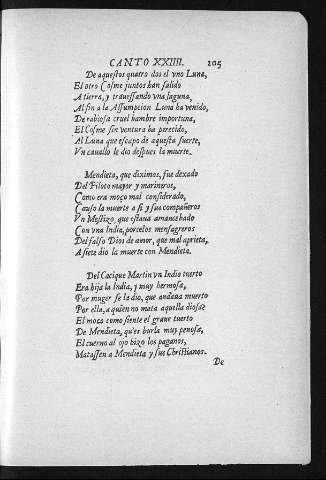 CANTO XXIIII. 205
De aquestos quatro dos el vno Luna,
El otro Cosme juntos han salido
A tierra, y trauessando vna laguna,
Al fin a la Assumpcion Luna ha venido,
De rabiosa cruel hambre importuna,
El Cosme sin ventura ha perecido,
Al Luna que escapo de aquesta suerte,
Vn cauallo le dio despues la muerte.
Mendieta, que diximos, fue dexado
Del Piloto mayor y marineros,
Como era moço mal considerado,
Causo la muerte a si y sus compañeros
Vn Mestizo, que estaua amancebado
Con vna India, por celos mensageros
Del falso Dios de amor, que mal aprieta,
A siete dio la muerte con Mendieta.
Del Cacique Martin vn Indio tuerto
Era hija la India, y muy hermosa,
Por muger se la dio, que andaua muerto
Por ella, a quien no mata aquella diosa?
El moço como siente el graue tuerto
De Mendieta, qu'es burla muy penosa,
El cuerno al ojo hizo los paganos,
Matassen a Mendieta y sus Christianos.
De